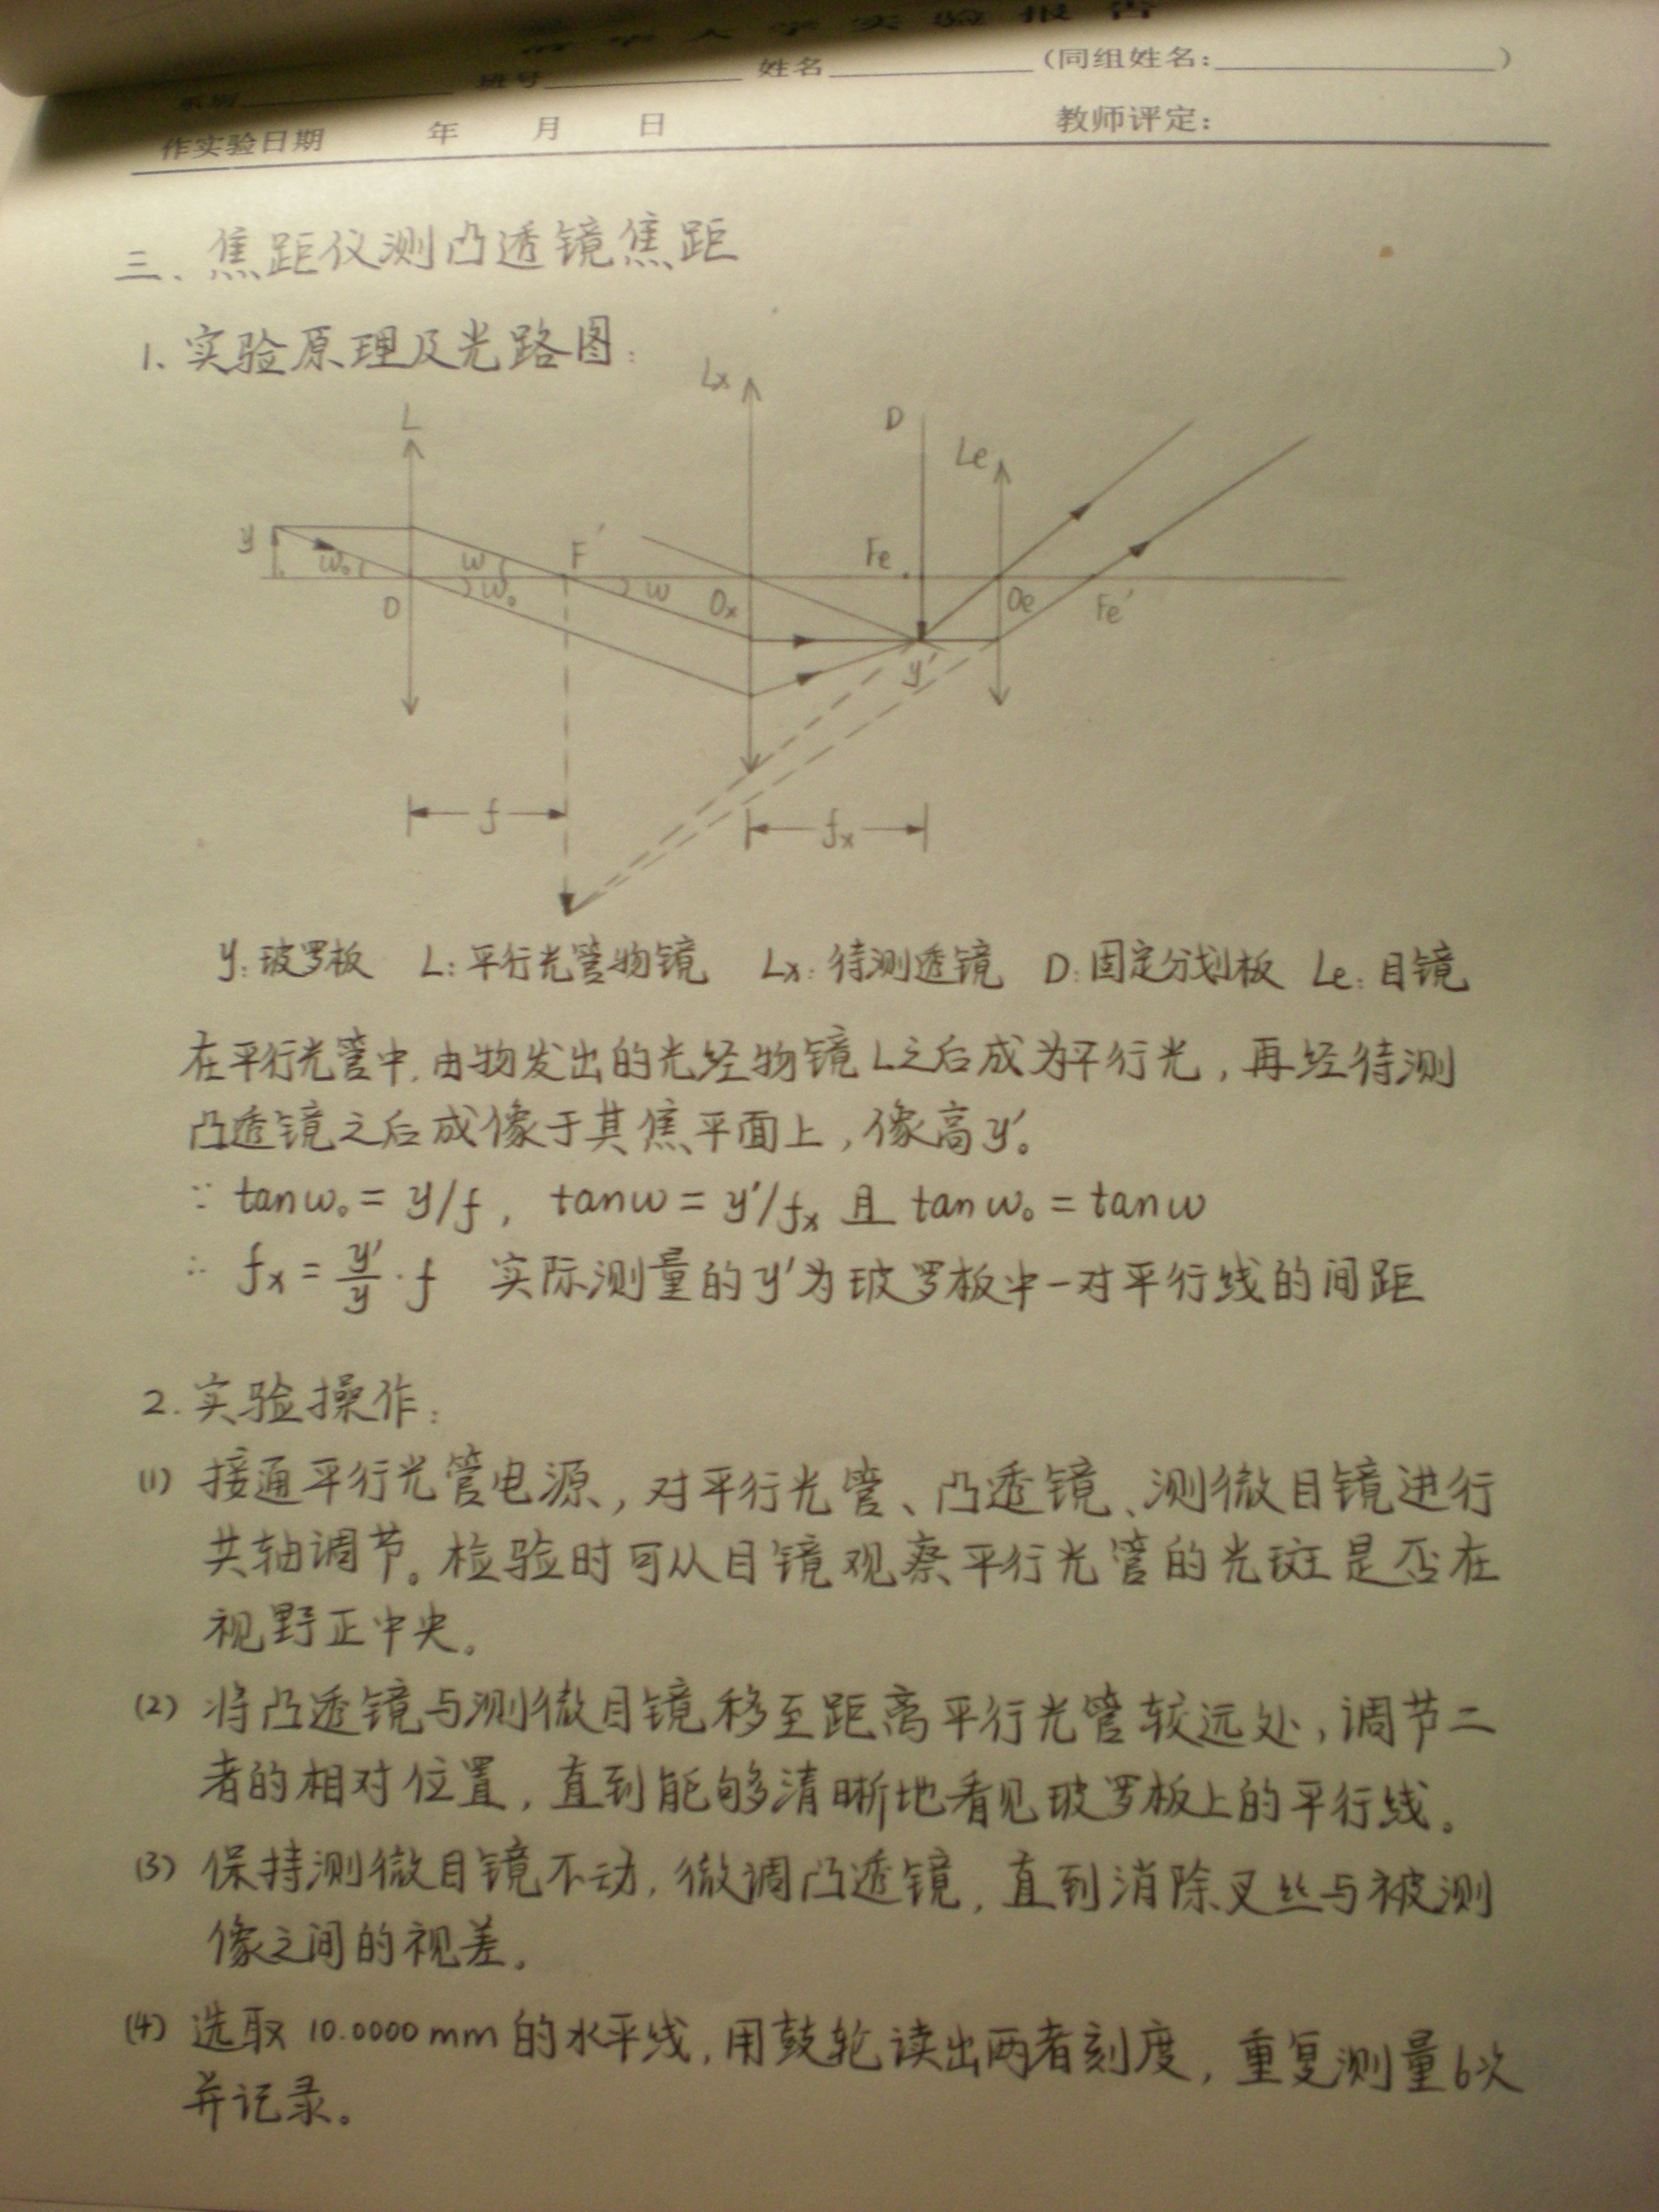 清华大学实验报告
系别 班号 姓名 (同组姓名: )
作实验日期 年 月 日 教师评定:
三、焦距仪测凸透镜焦距
1、实验原理及光路图:
Lx
L D Le
y ω₀ ω F′ Fe
ω₀ ω
O Ox Oe Fe′
y′
f fx
y:玻罗板 L:平行光管物镜 Lx:待测透镜 D:固定分划板 Le:目镜
在平行光管中,由物发出的光经物镜L之后成为平行光,再经待测
凸透镜之后成像于其焦平面上,像高y′。
∵ tanω₀ = y/f, tanω = y′/fx 且 tanω₀ = tanω
∴ fx = y′/y · f 实际测量的y′为玻罗板中一对平行线的间距
2.实验操作:
(1) 接通平行光管电源,对平行光管、凸透镜、测微目镜进行
共轴调节。检验时可从目镜观察平行光管的光斑是否在
视野正中央。
(2) 将凸透镜与测微目镜移至距离平行光管较远处,调节二
者的相对位置,直到能够清晰地看见玻罗板上的平行线。
(3) 保持测微目镜不动,微调凸透镜,直到消除叉丝与被测
像之间的视差。
(4) 选取10.0000mm的水平线,用鼓轮读出两者刻度,重复测量6次
并记录。